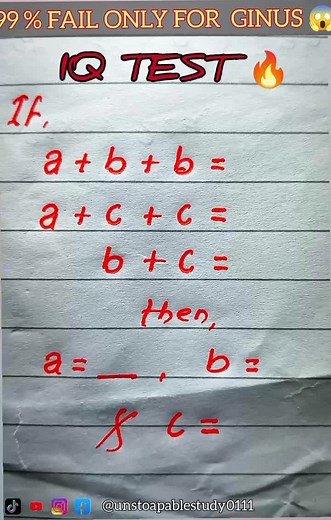 99 % FAIL ONLY FOR GINUS 😱
IQ TEST 🔥
If,
a + b + b =
a + c + c =
b + c =
then,
a = __ , b =
& c =
@unstoapablestudy0111